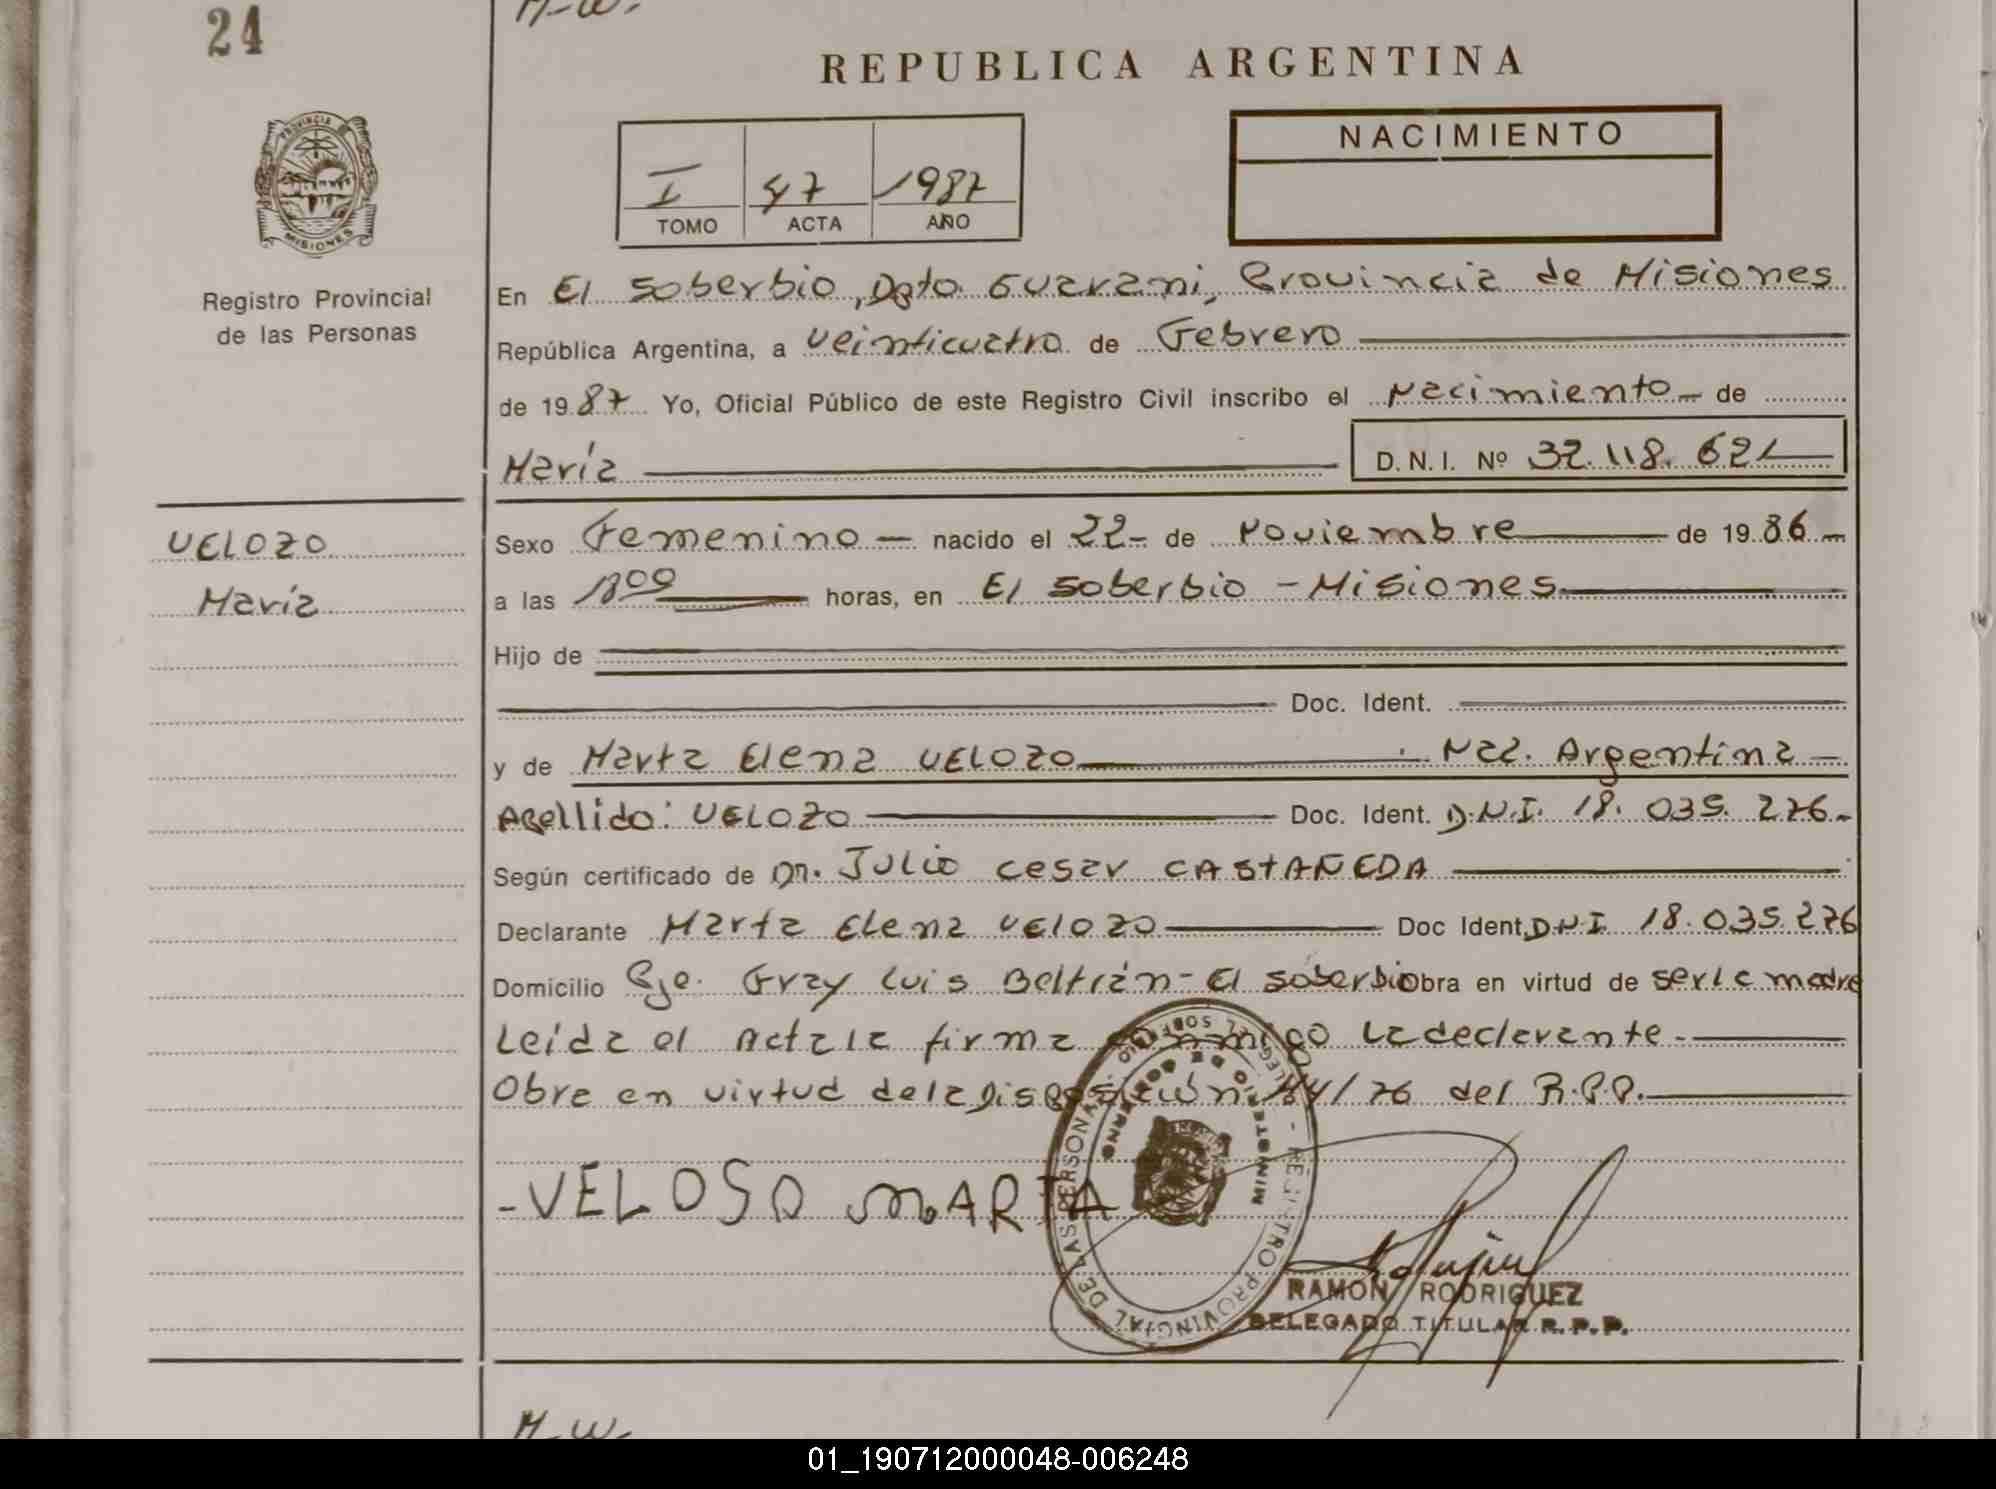 24
M-W.
REPUBLICA ARGENTINA
PROVINCIA DE
MISIONES
Registro Provincial
de las Personas
I 47 1987
TOMO ACTA AÑO
NACIMIENTO
En El Soberbio, Dpto Guarani, Provincia de Misiones
República Argentina, a veinticuatro de Febrero
de 1987 Yo, Oficial Público de este Registro Civil inscribo el Nacimiento- de
María D.N.I. Nº 32.118.621
VELOZO
María
Sexo Femenino - nacido el 22- de Noviembre de 1986-
a las 1800 horas, en El Soberbio - Misiones
Hijo de
Doc. Ident.
y de Marta Elena VELOZO Nac. Argentina -
Apellido: VELOZO Doc. Ident. D.N.I. 18.035.276-
Según certificado de Dn. Julio Cesar CASTAÑEDA
Declarante Marta Elena VELOZO Doc Ident. D.N.I 18.035.276
Domicilio Pje. Fray Luis Beltrán - El Soberbio obra en virtud de ser la madre
Leída el Acta la firma conmigo la declarante.-
Obre en virtud de la Disposición 44/76 del R.P.P.
-VELOSO MARTA
REGISTRO PROVINCIAL DE LAS PERSONAS - DELEG. EL SOBERBIO
MINISTERIO DE GOBIERNO
RAMON RODRIGUEZ
DELEGADO TITULAR R.P.P.
M-W.
01_190712000048-006248